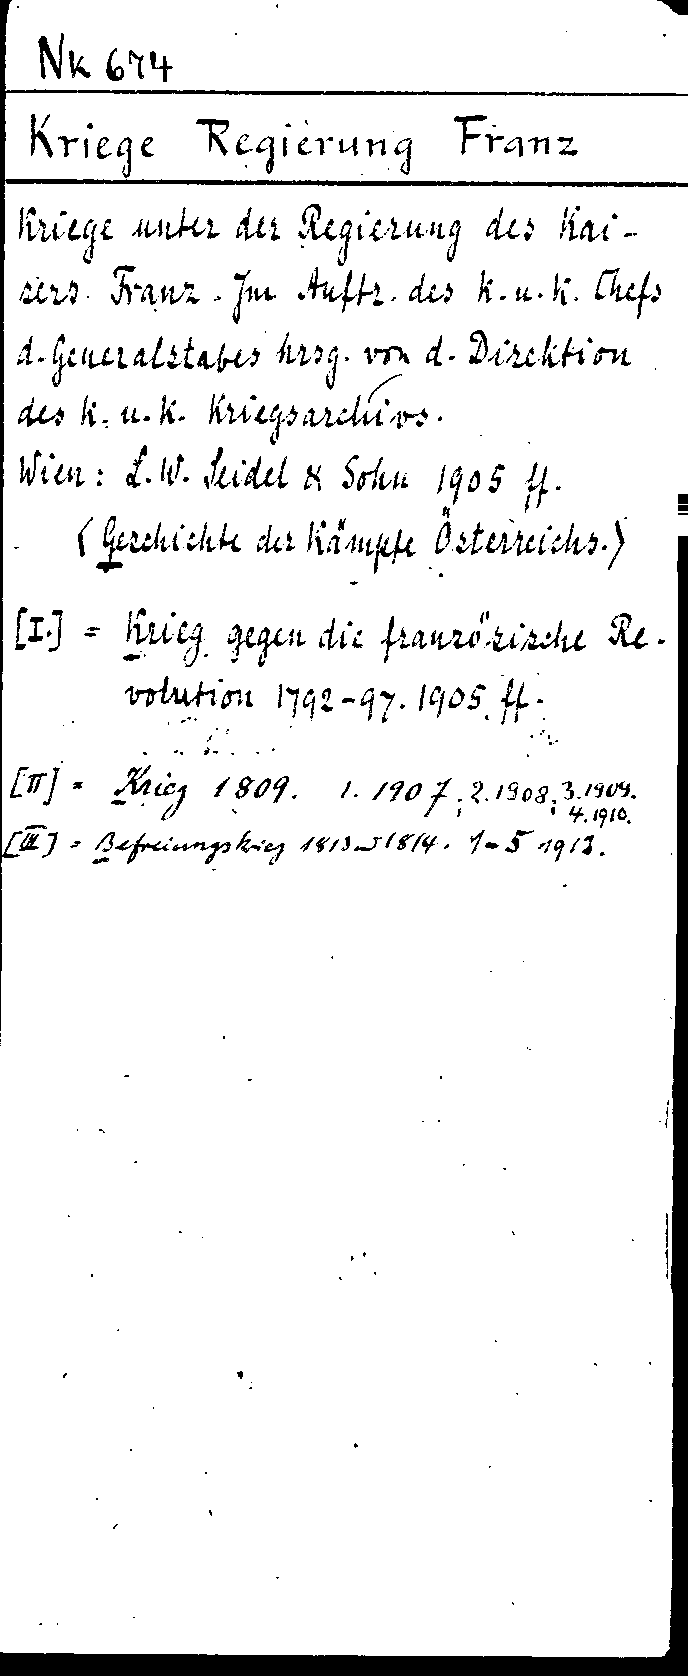 Nk 674
Kriege Regierung Franz
Kriege unter der Regierung des Kai-
sers Franz. Im Auftr. des k. u. k. Chefs
d. Generalstabes hrsg. von d. Direktion
des k. u. k. Kriegsarchivs.
Wien: L. W. Seidel & Sohn 1905 ff.
(Geschichte der Kämpfe Österreichs.)
[I.] = Krieg gegen die französische Re-
volution 1792-97. 1905 ff.
[II] = Krieg 1809. 1. 1907; 2. 1908; 3. 1909.
4. 1910.
[III] = Befreiungskrieg 1813-1814. 1-5 1913.